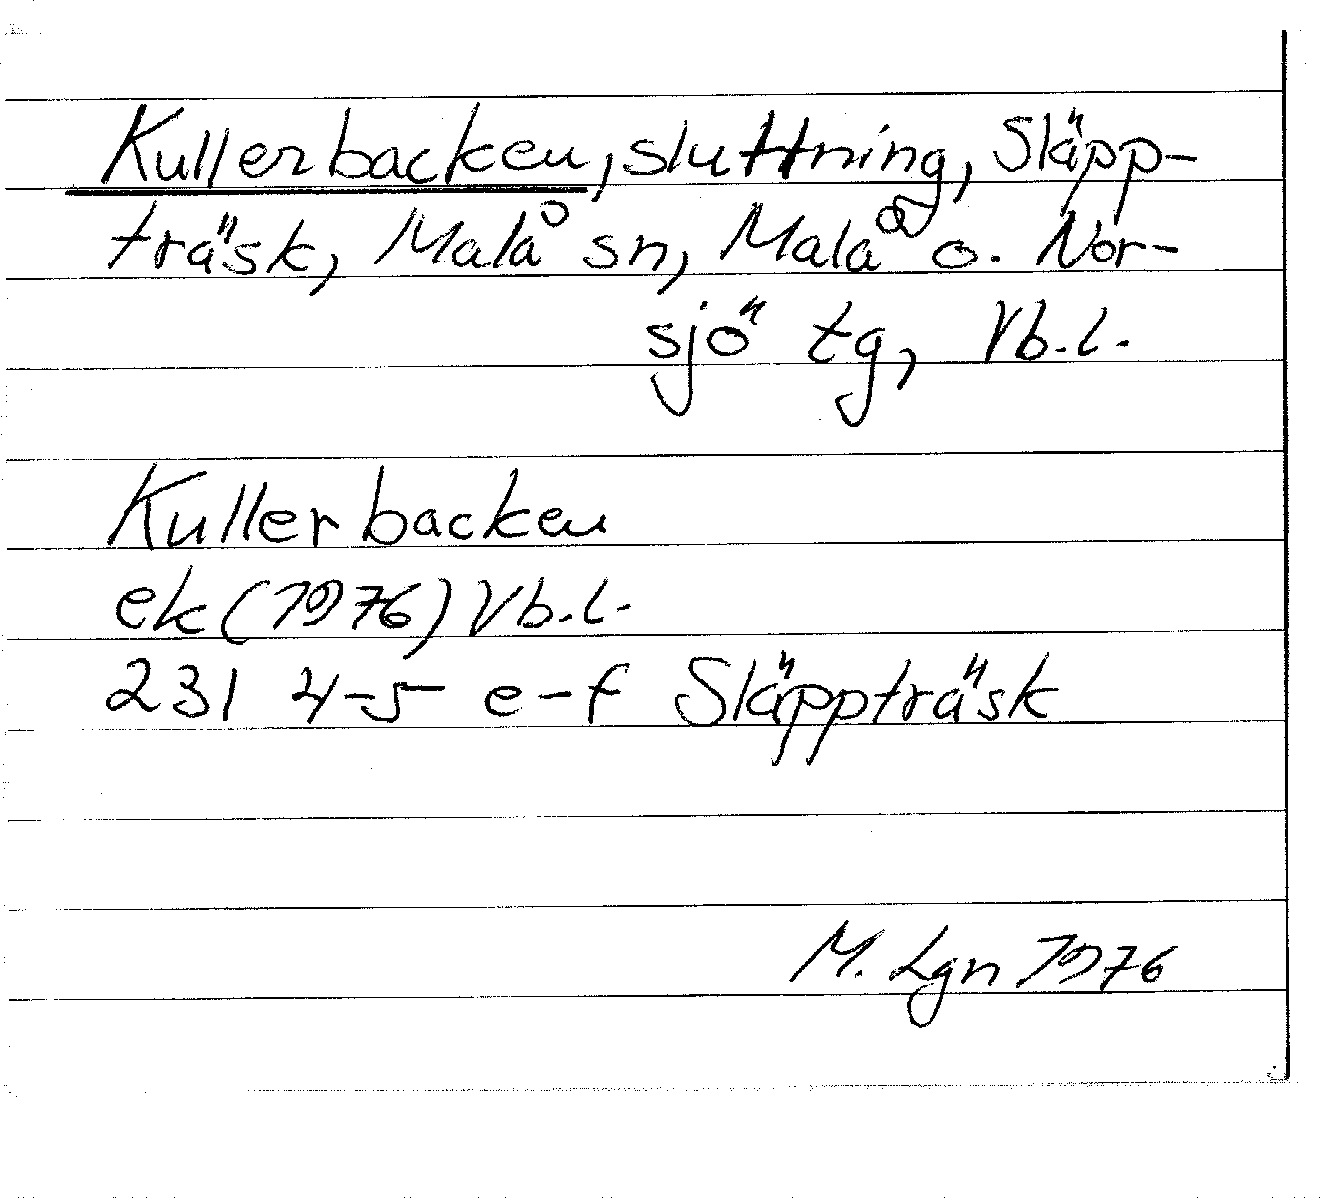 Kullerbacken, sluttning, Släpp-
träsk, Malå sn, Malå o. Nor-
sjö tg, Vb.l.
Kullerbacken
ek (1976) Vb.l.
231 4-5 e-f Släppträsk
M. Lgn 1976